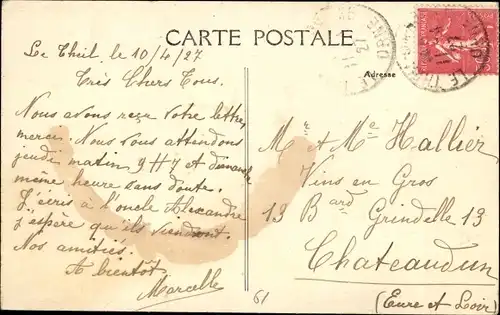 CARTE POSTALE
Adresse
Le Theil le 10/4/27
Très Chers Tous.
Nous avons reçu votre lettre,
merci. Nous vous attendons
jeudi matin 9H7 et dimanche
même heure sans doute.
J'écris à l'oncle Alexandre
j'espère qu'ils viendront.
Nos amitiés.
A bientôt
Marcelle
Mr et Me Hallier
Vins en Gros
13 Bard Grindelle 13
Chateaudun
(Eure et Loir)
61
ORNE